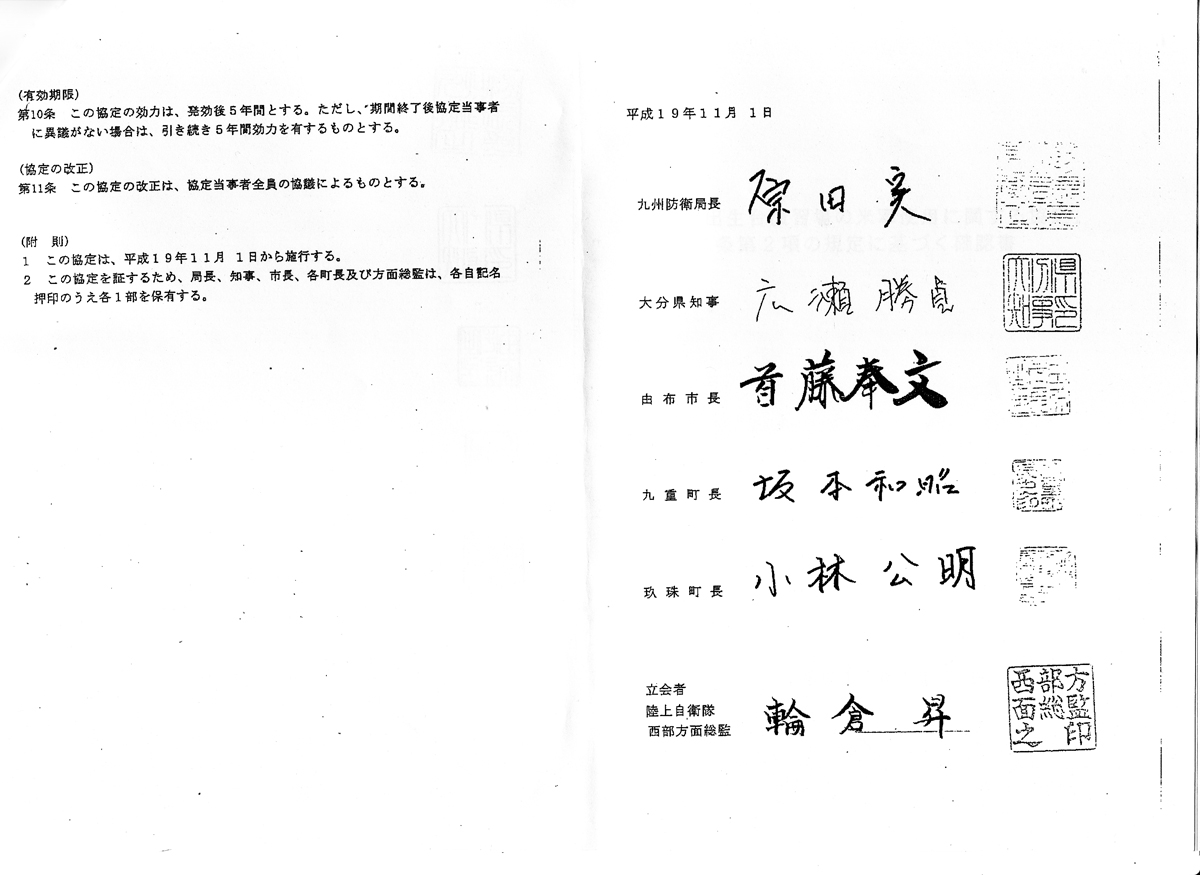 (有効期限)
第10条　この協定の効力は、発効後5年間とする。ただし、期間終了後協定当事者
に異議がない場合は、引き続き5年間効力を有するものとする。
(協定の改正)
第11条　この協定の改正は、協定当事者全員の協議によるものとする。
(附　則)
1　この協定は、平成19年11月 1日から施行する。
2　この協定を証するため、局長、知事、市長、各町長及び方面総監は、各自記名
押印のうえ各1部を保有する。
平成19年11月 1日
九州防衛局長　原田実
大分県知事　広瀬勝貞
由布市長　首藤奉文
九重町長　坂本和昭
玖珠町長　小林公明
立会者
陸上自衛隊
西部方面総監　輪倉昇
西部方
面総監
之印